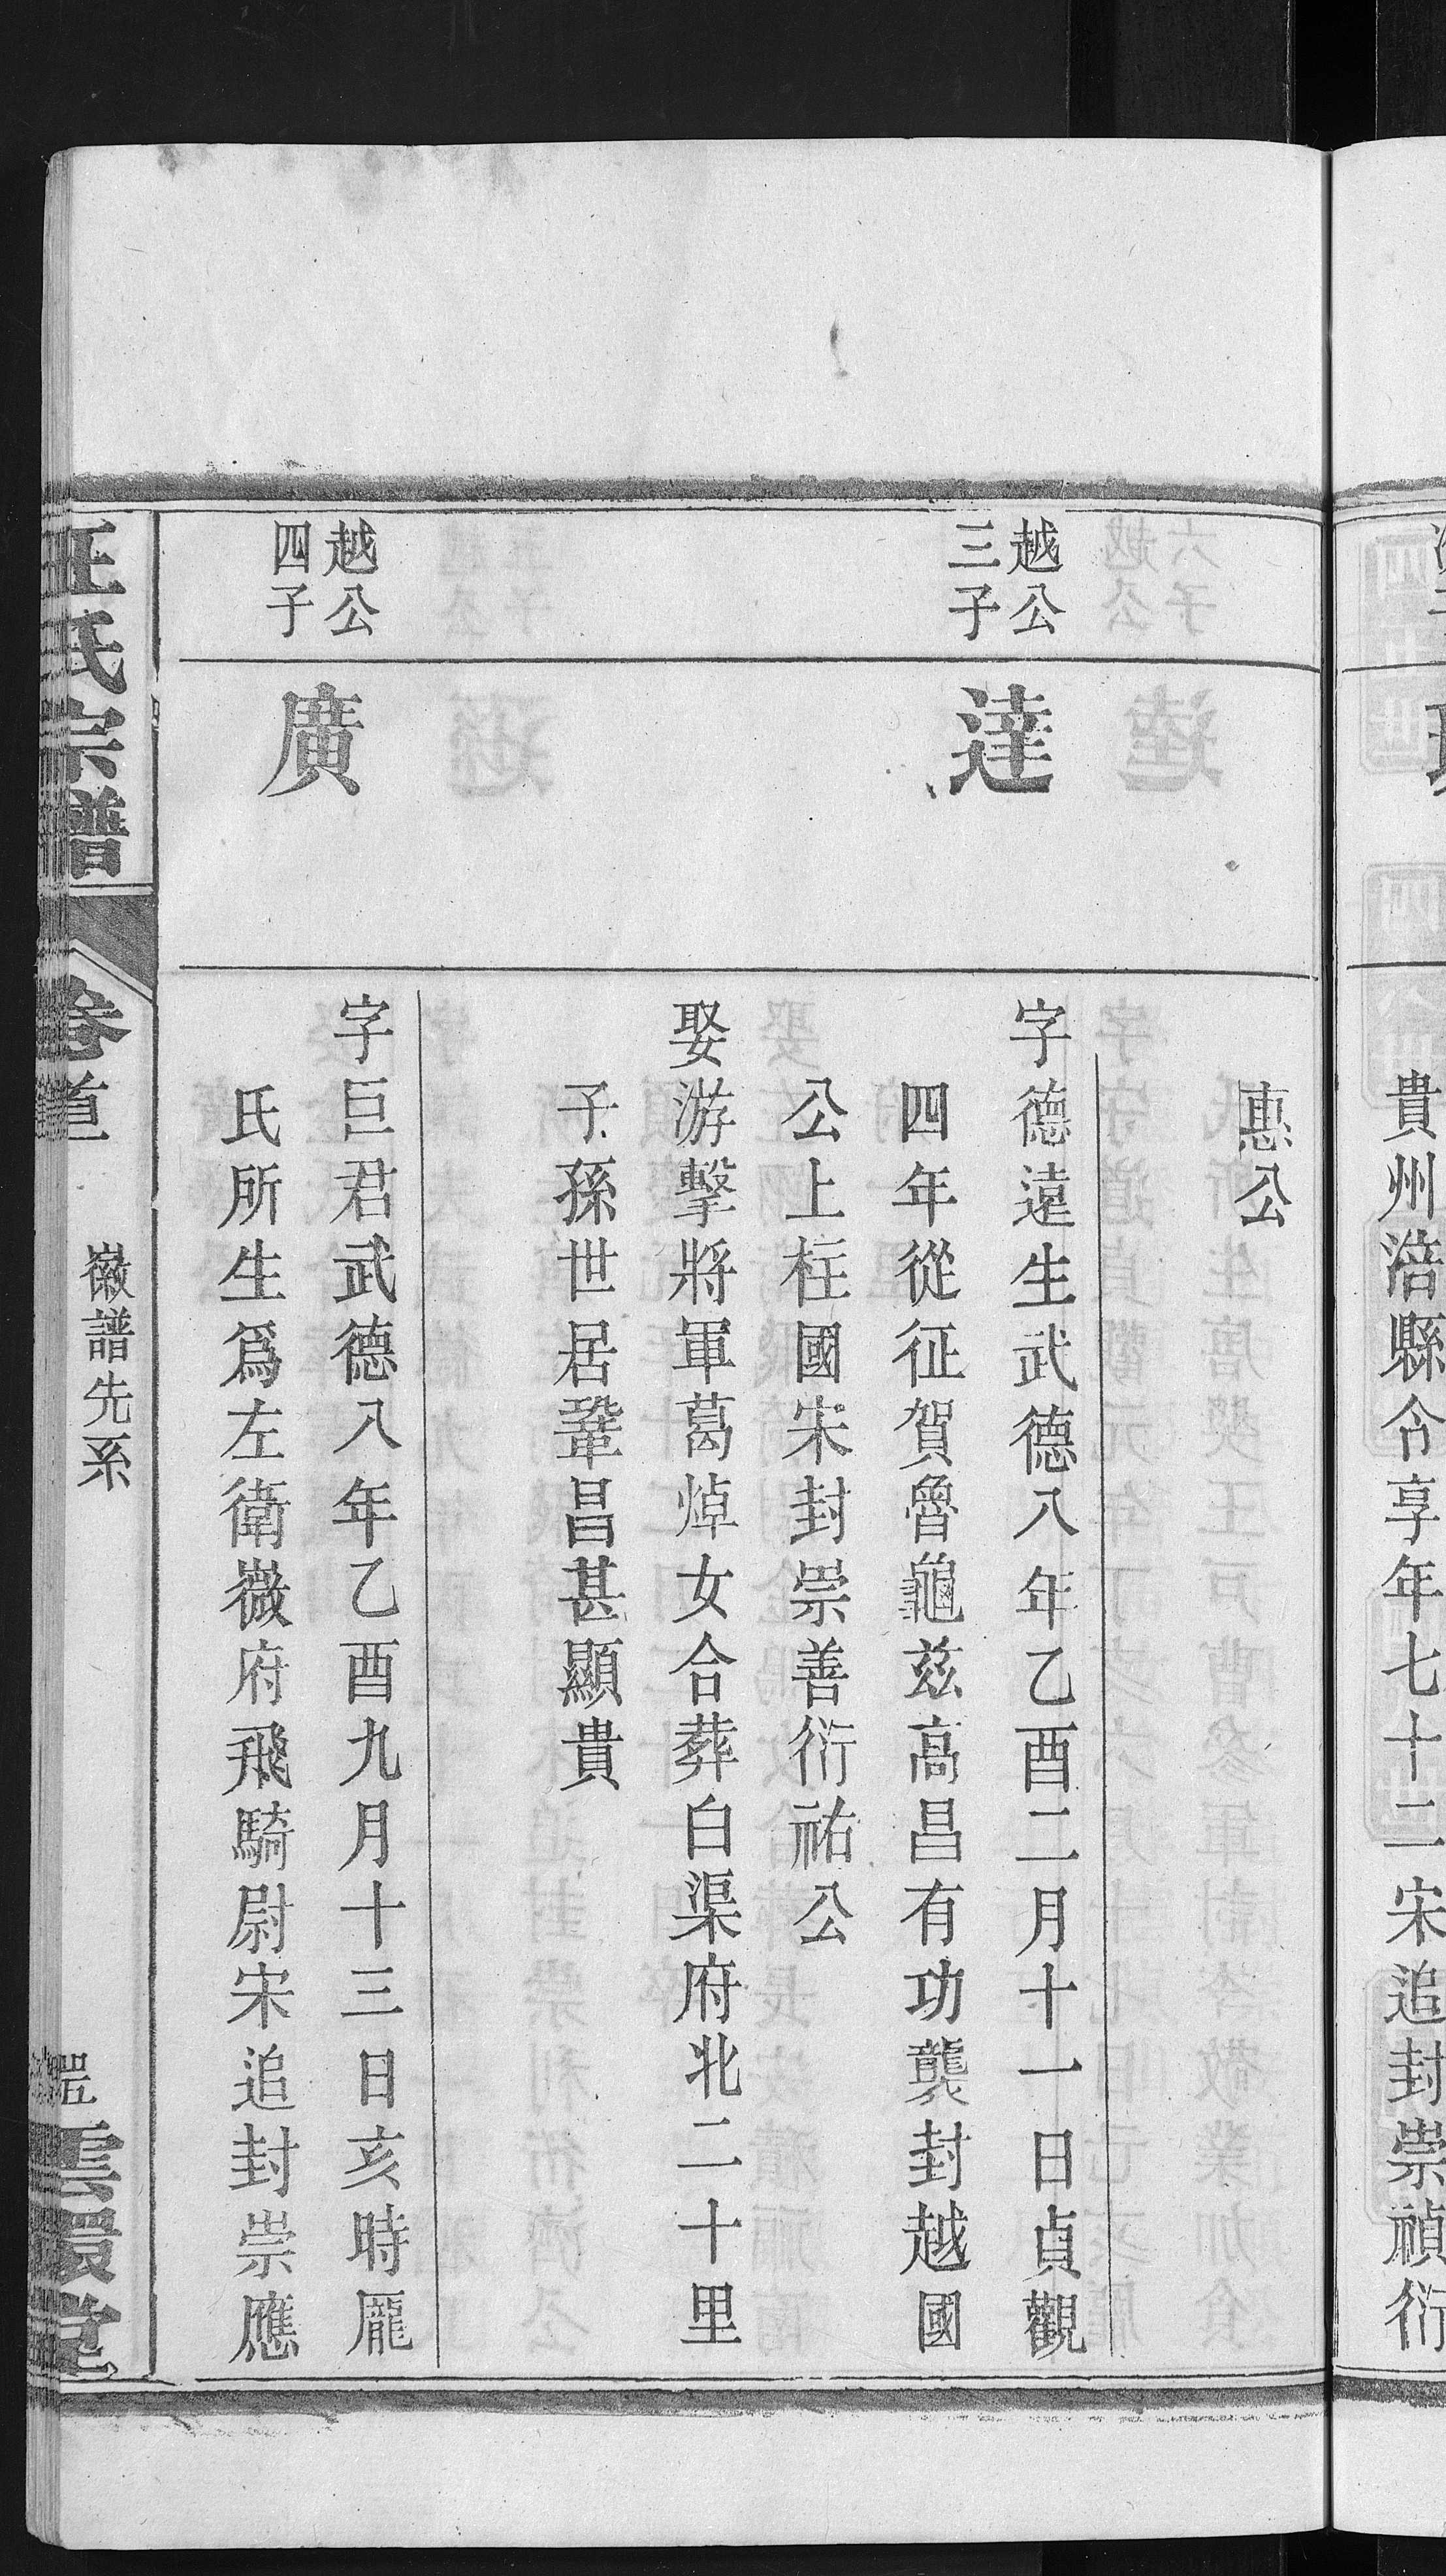 貴州涪縣令享年七十二宋追封崇禎衍
惠公
越公
三子
達
字德遠生武德八年乙酉二月十一日貞觀
四年從征賀魯龜茲高昌有功襲封越國
公上柱國宋封崇善衍祐公
娶游擊將軍葛焯女合葬白渠府北二十里
子孫世居鞏昌甚顯貴
越公
四子
廣
字巨君武德八年乙酉九月十三日亥時龎
氏所生爲左衛微府飛騎尉宋追封崇應
汪氏宗譜
卷首
徽譜先系